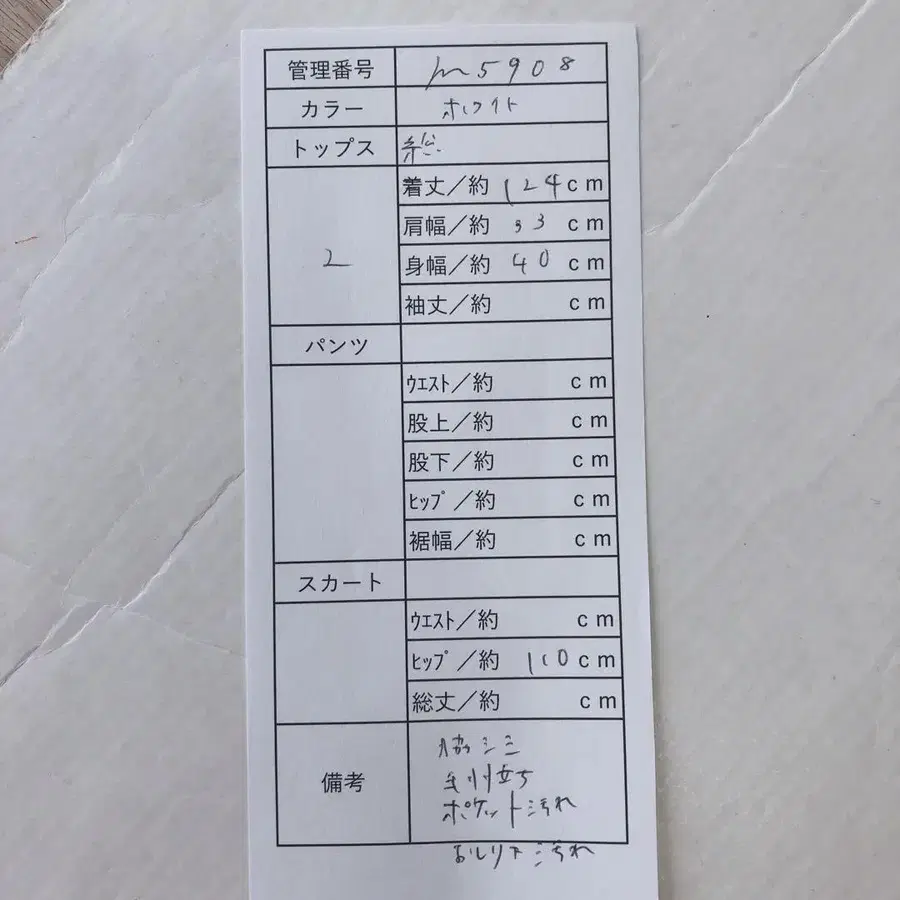 管理番号 m5908
カラー ホワイト
トップス 総
2
着丈/約 124cm
肩幅/約 33 cm
身幅/約 40 cm
袖丈/約 cm
パンツ
ウエスト/約 cm
股上/約 cm
股下/約 cm
ヒップ/約 cm
裾幅/約 cm
スカート
ウエスト/約 cm
ヒップ/約 110cm
総丈/約 cm
備考
脇シミ
毛羽立ち
ポケット汚れ
おしり下汚れ